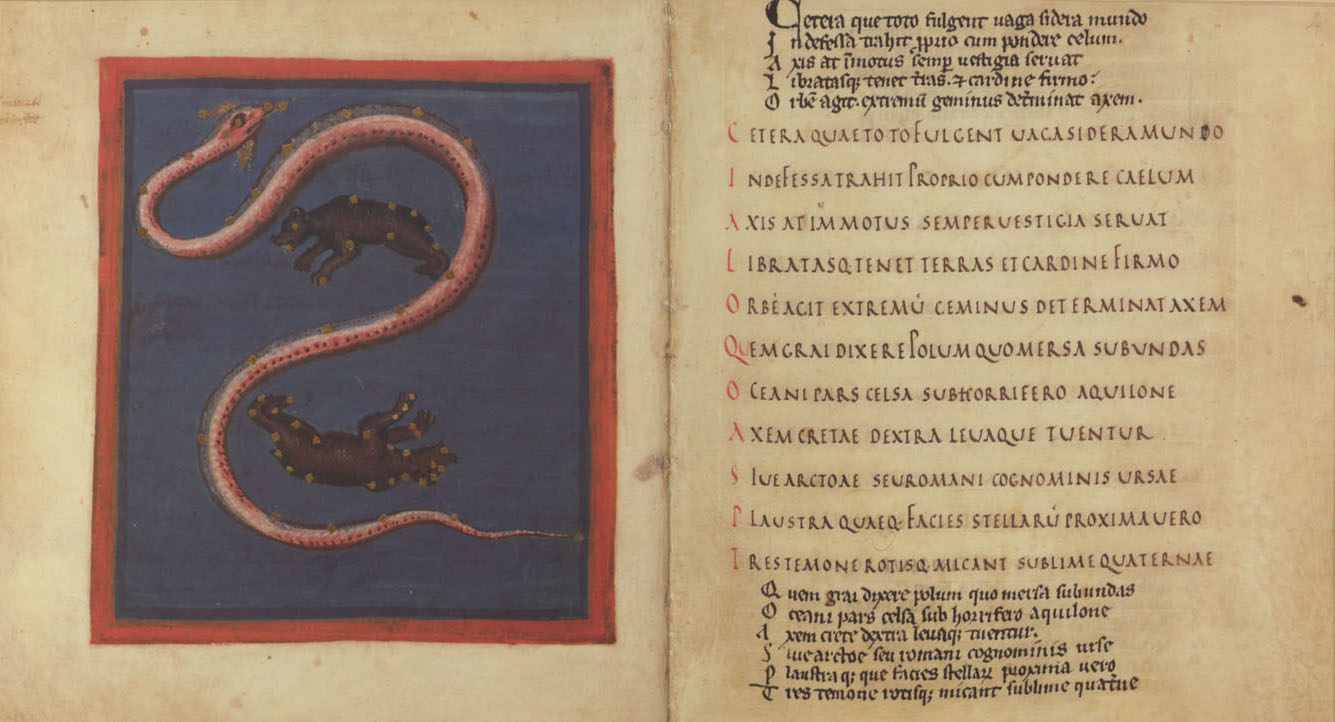 Cetera que toto fulgent uaga sidera mundo
Indefessa trahit ꝓprio cum pondere celum.
Axis at īmotus semꝑ uestigia seruat
Libratasqꝫ tenet t̄ras. ⁊ cardine firmo:
Orbē agit. extremū geminus det̄minat axem.
CETERA QUAE TOTO FULGENT UAGA SIDERA MUNDO
INDEFESSA TRAHIT PROPRIO CUM PONDERE CAELUM
AXIS AT IMMOTUS SEMPER UESTIGIA SERUAT
LIBRATASQ TENET TERRAS ET CARDINE FIRMO
ORBĒ AGIT EXTREMŪ GEMINUS DETERMINAT AXEM
QUEM GRAI DIXERE POLUM QUO MERSA SUB UNDAS
OCEANI PARS CELSA SUB HORRIFERO AQUILONE
AXEM CRETAE DEXTRA LEUAQUE TUENTUR
SIUE ARCTOAE SEU ROMANI COGNOMINIS URSAE
PLAUSTRA QUAEQ. FACIES STELLARŪ PROXIMA UERO
TRES TEMONE ROTISQ. MICANT SUBLIME QUATERNAE
Quem grai dixere polum quo mersa sub undas
Oceani pars celsa sub horrifero aquilone
Axem crete dextra leuaqꝫ tuentur.
Siue arctoe seu romani cognominis urse
Plaustra qꝫ que facies stellaꝝ proxima uero
Tres temone rotisqꝫ micant sublime quat̄ne